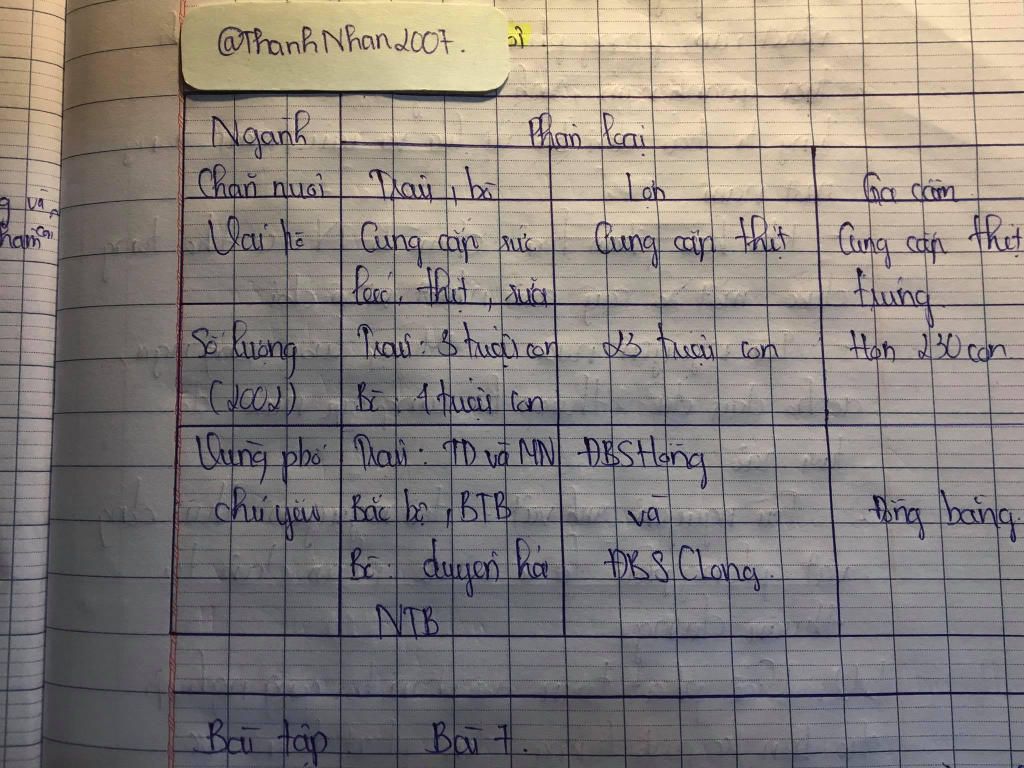 @ThanhNhan2007.
Ngành Phân loại
Chăn nuôi Trâu, bò Lợn Gia cầm
Vai trò Cung cấp sức Cung cấp thịt Cung cấp thịt
kéo, thịt, sữa trứng
Số lượng Trâu: 3 triệu con 23 triệu con Hơn 230 con
(2002) Bò: 4 triệu con
Vùng phbố Trâu: TD và MN ĐBSHồng
chủ yếu Bắc bộ, BTB và Đồng bằng.
Bò: duyên hải ĐBSCLong.
NTB
Bài tập Bài 7.